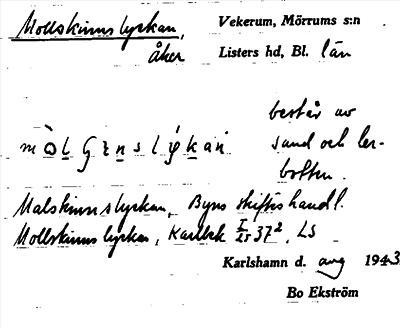 Mollskinnslyckan, Vekerum, Mörrums s:n
åker Listers hd, Bl. län
består av
sand och ler-
botten.
Malskinnslyckan, Byns skifteshandl.
Mollskinnslyckan, Kartbk 37², LS
Karlshamn d. aug 1943
Bo Ekström